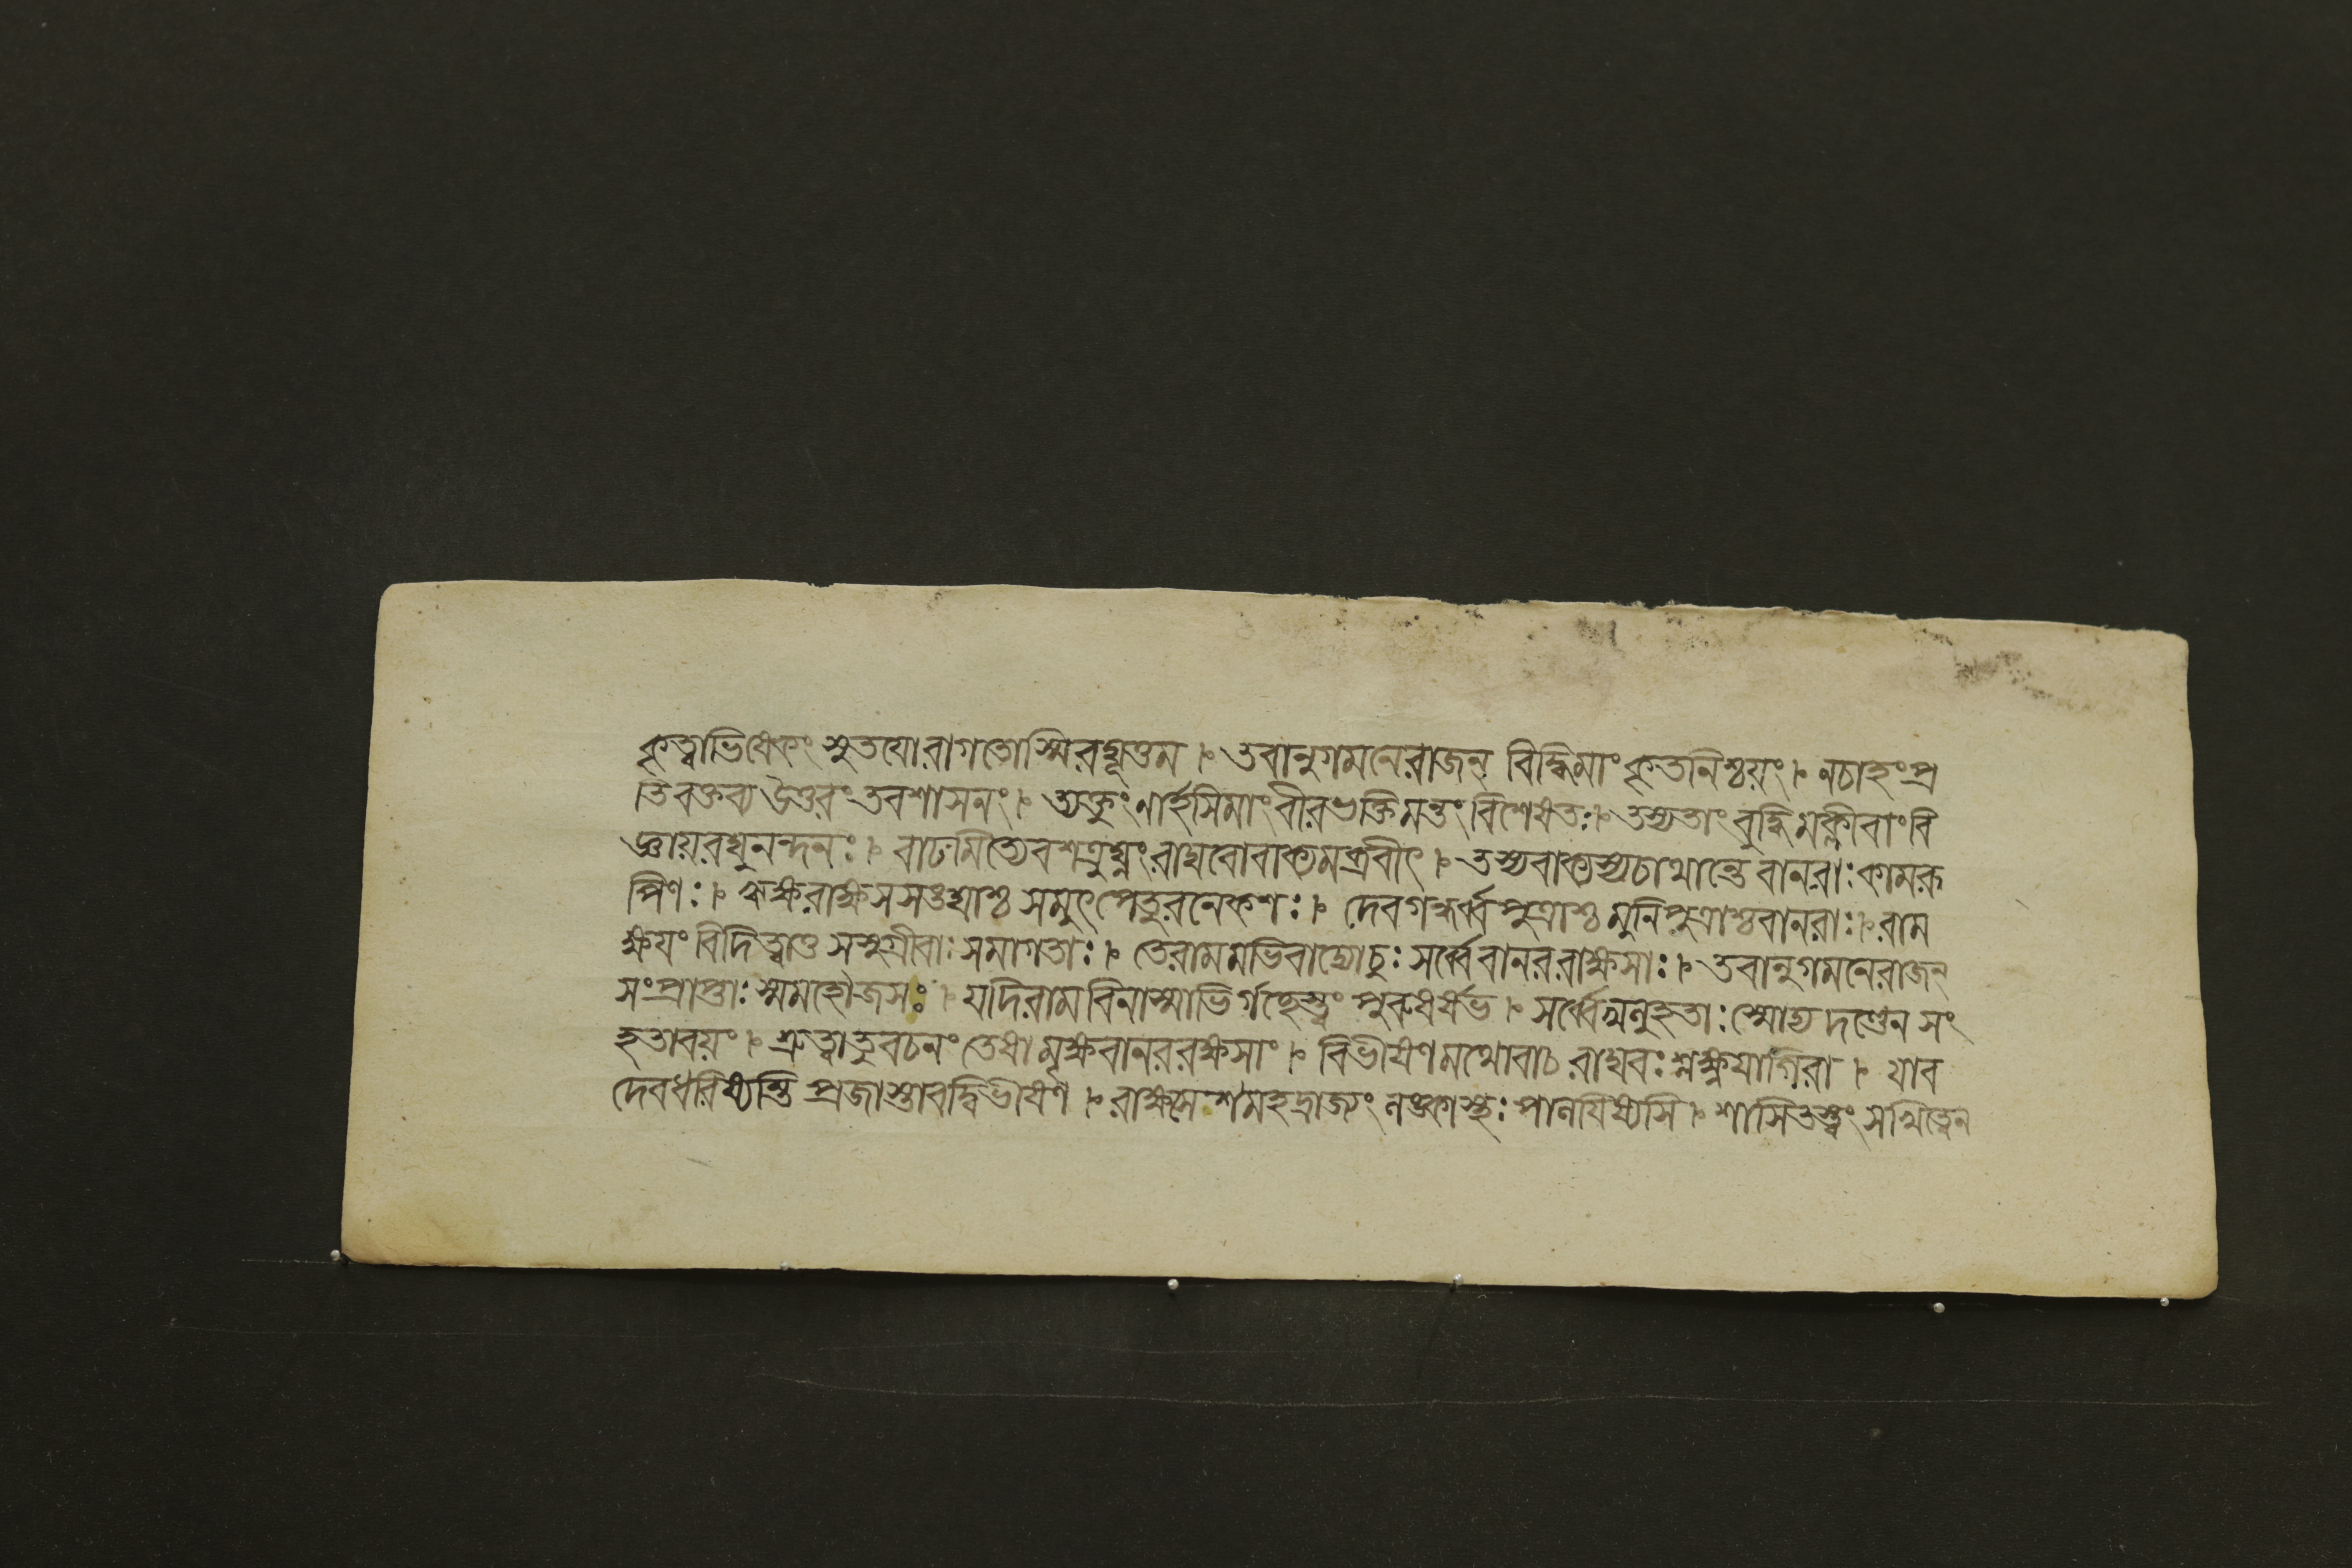 কৃত্বাভিষেকং সুতযোরাগতোস্মিরঘূত্তম । তবানুগমনেরাজন্ বিদ্ধিমাং কৃতনিশ্চয়ং । নচাহংপ্র
তিবক্তব্য উত্তরং তবশাসনং । ত্যক্তুং ণার্হসিমাং বীরভক্তিমন্তং বিশেষতঃ । তস্যতাং বুদ্ধিমক্লীবাং বি
জ্ঞায়রঘুনন্দনঃ । বাঢমিত্যেবশত্রুঘ্নং রাঘবোবাক্যমব্রবীৎ । তস্যবাক্যস্যচাথান্তে বানরাঃ কামরূ
পিণঃ । ঋক্ষরাক্ষসসঙ্ঘাশ্চ সমুৎপেতুরনেকশঃ । দেবগন্ধর্ব্ব পুত্রাশ্চ মুনিপুত্রাশ্চবানরাঃ । রাম
ক্ষয়ং বিদিত্বাণ্ড সসুগ্রীবাঃ সমাগতাঃ । তেরামমভিবাদ্যোচুঃ সর্ব্বেবানররাক্ষসাঃ । তবানুগমনেরাজন্
সংপ্রাপ্তাঃ স্মমহৌজসঃ । যদিরামবিনাস্মাভির্গচ্ছেস্ত্বং পুরুষর্ষভ । সর্ব্বেমনুহতাঃ স্মোদ্য দণ্ডেন সং
হতাবয়ং । শ্রুত্বাতু বচনং তেষামৃক্ষবানররক্ষসাং । বিভীষণমথোবাচ রাঘবঃ শ্লক্ষ্ণয়াগিরা । যাব
দেবধরিষ্যন্তি প্রজাস্তাবদ্বিভীষণ । রাক্ষসেশমহদ্রাজ্যং লঙ্কাস্থঃ পালয়িষ্যসি । শাসিতস্ত্বং সখিত্বেন